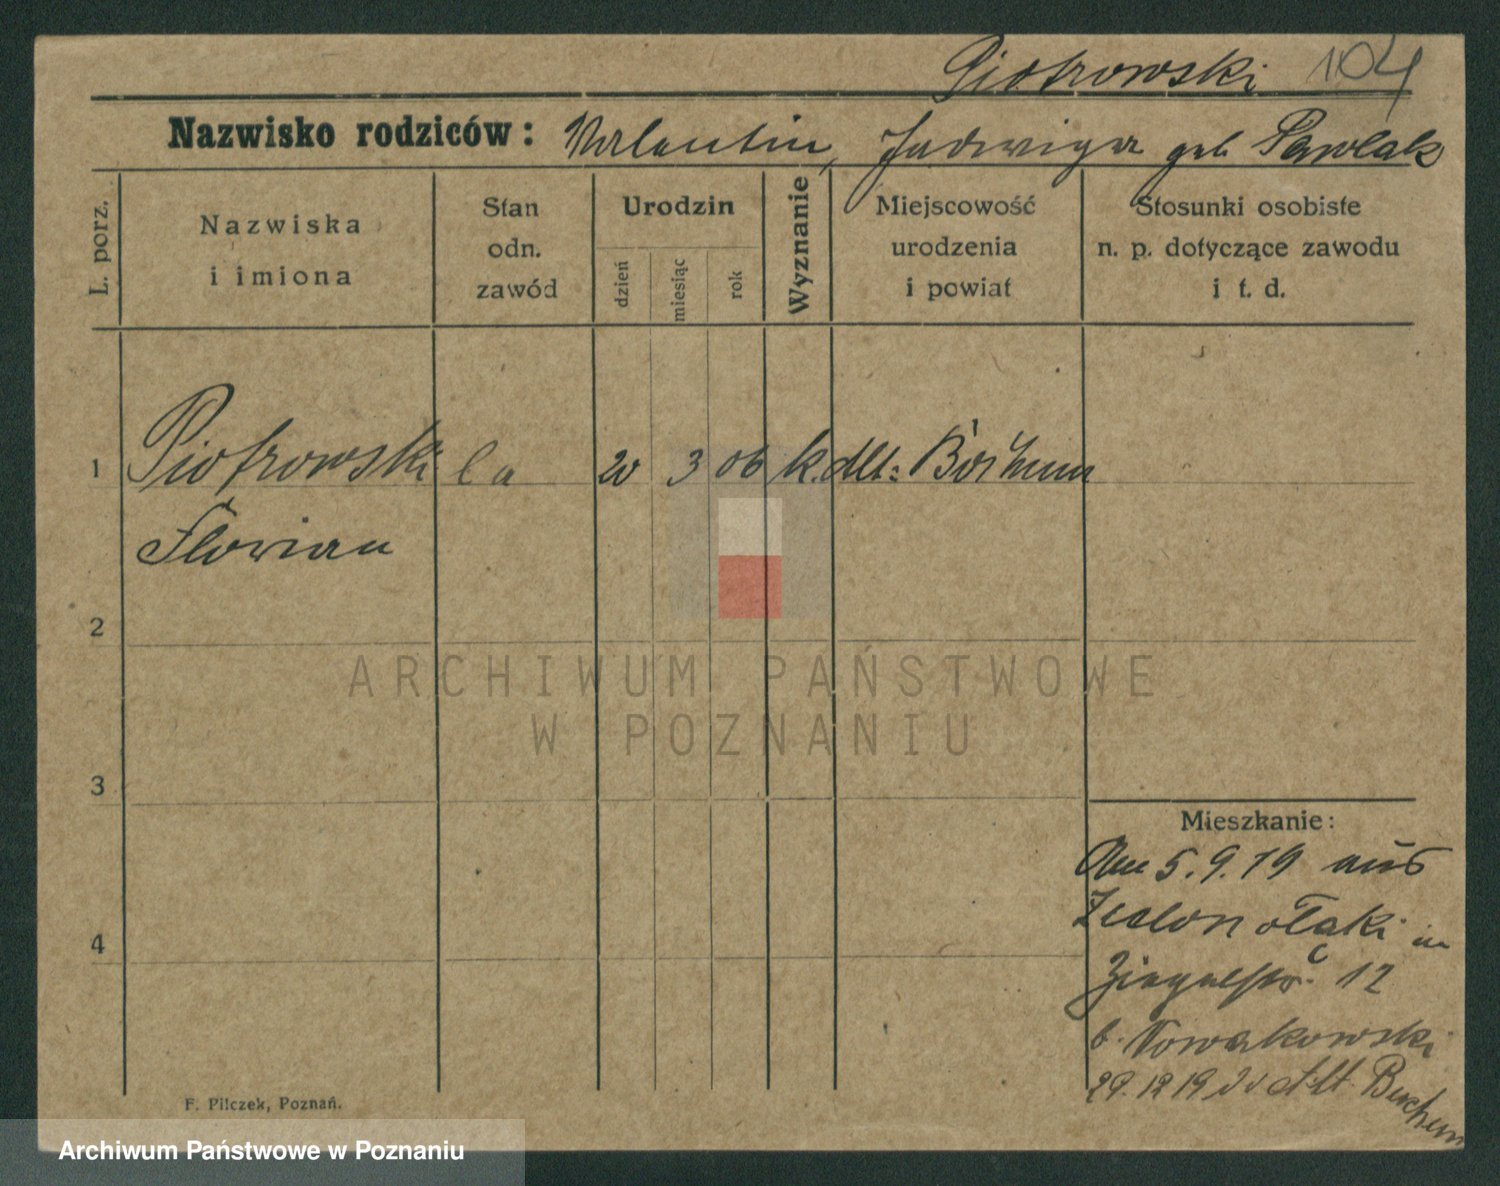 Piotrowski 104
Nazwisko rodziców: Valentin, Jadwiga geb Pawlak
L. porz.
Nazwiska
i imiona
Stan
odn.
zawód
Urodzin
dzień
miesiąc
rok
Wyznanie
Miejscowość
urodzenia
i powiat
Stosunki osobiste
n. p. dotyczące zawodu
i t. d.
1 Piotrowski 20 3 06 k. Alt=
Florian
2
ARCHIWUM PAŃSTWOWE
W POZNANIU
3
Mieszkanie:
5.9.19 aus
in
12
4
b. Nowakowski
29.12.19 Alt
F. Pilczek, Poznań.
Archiwum Państwowe w Poznaniu